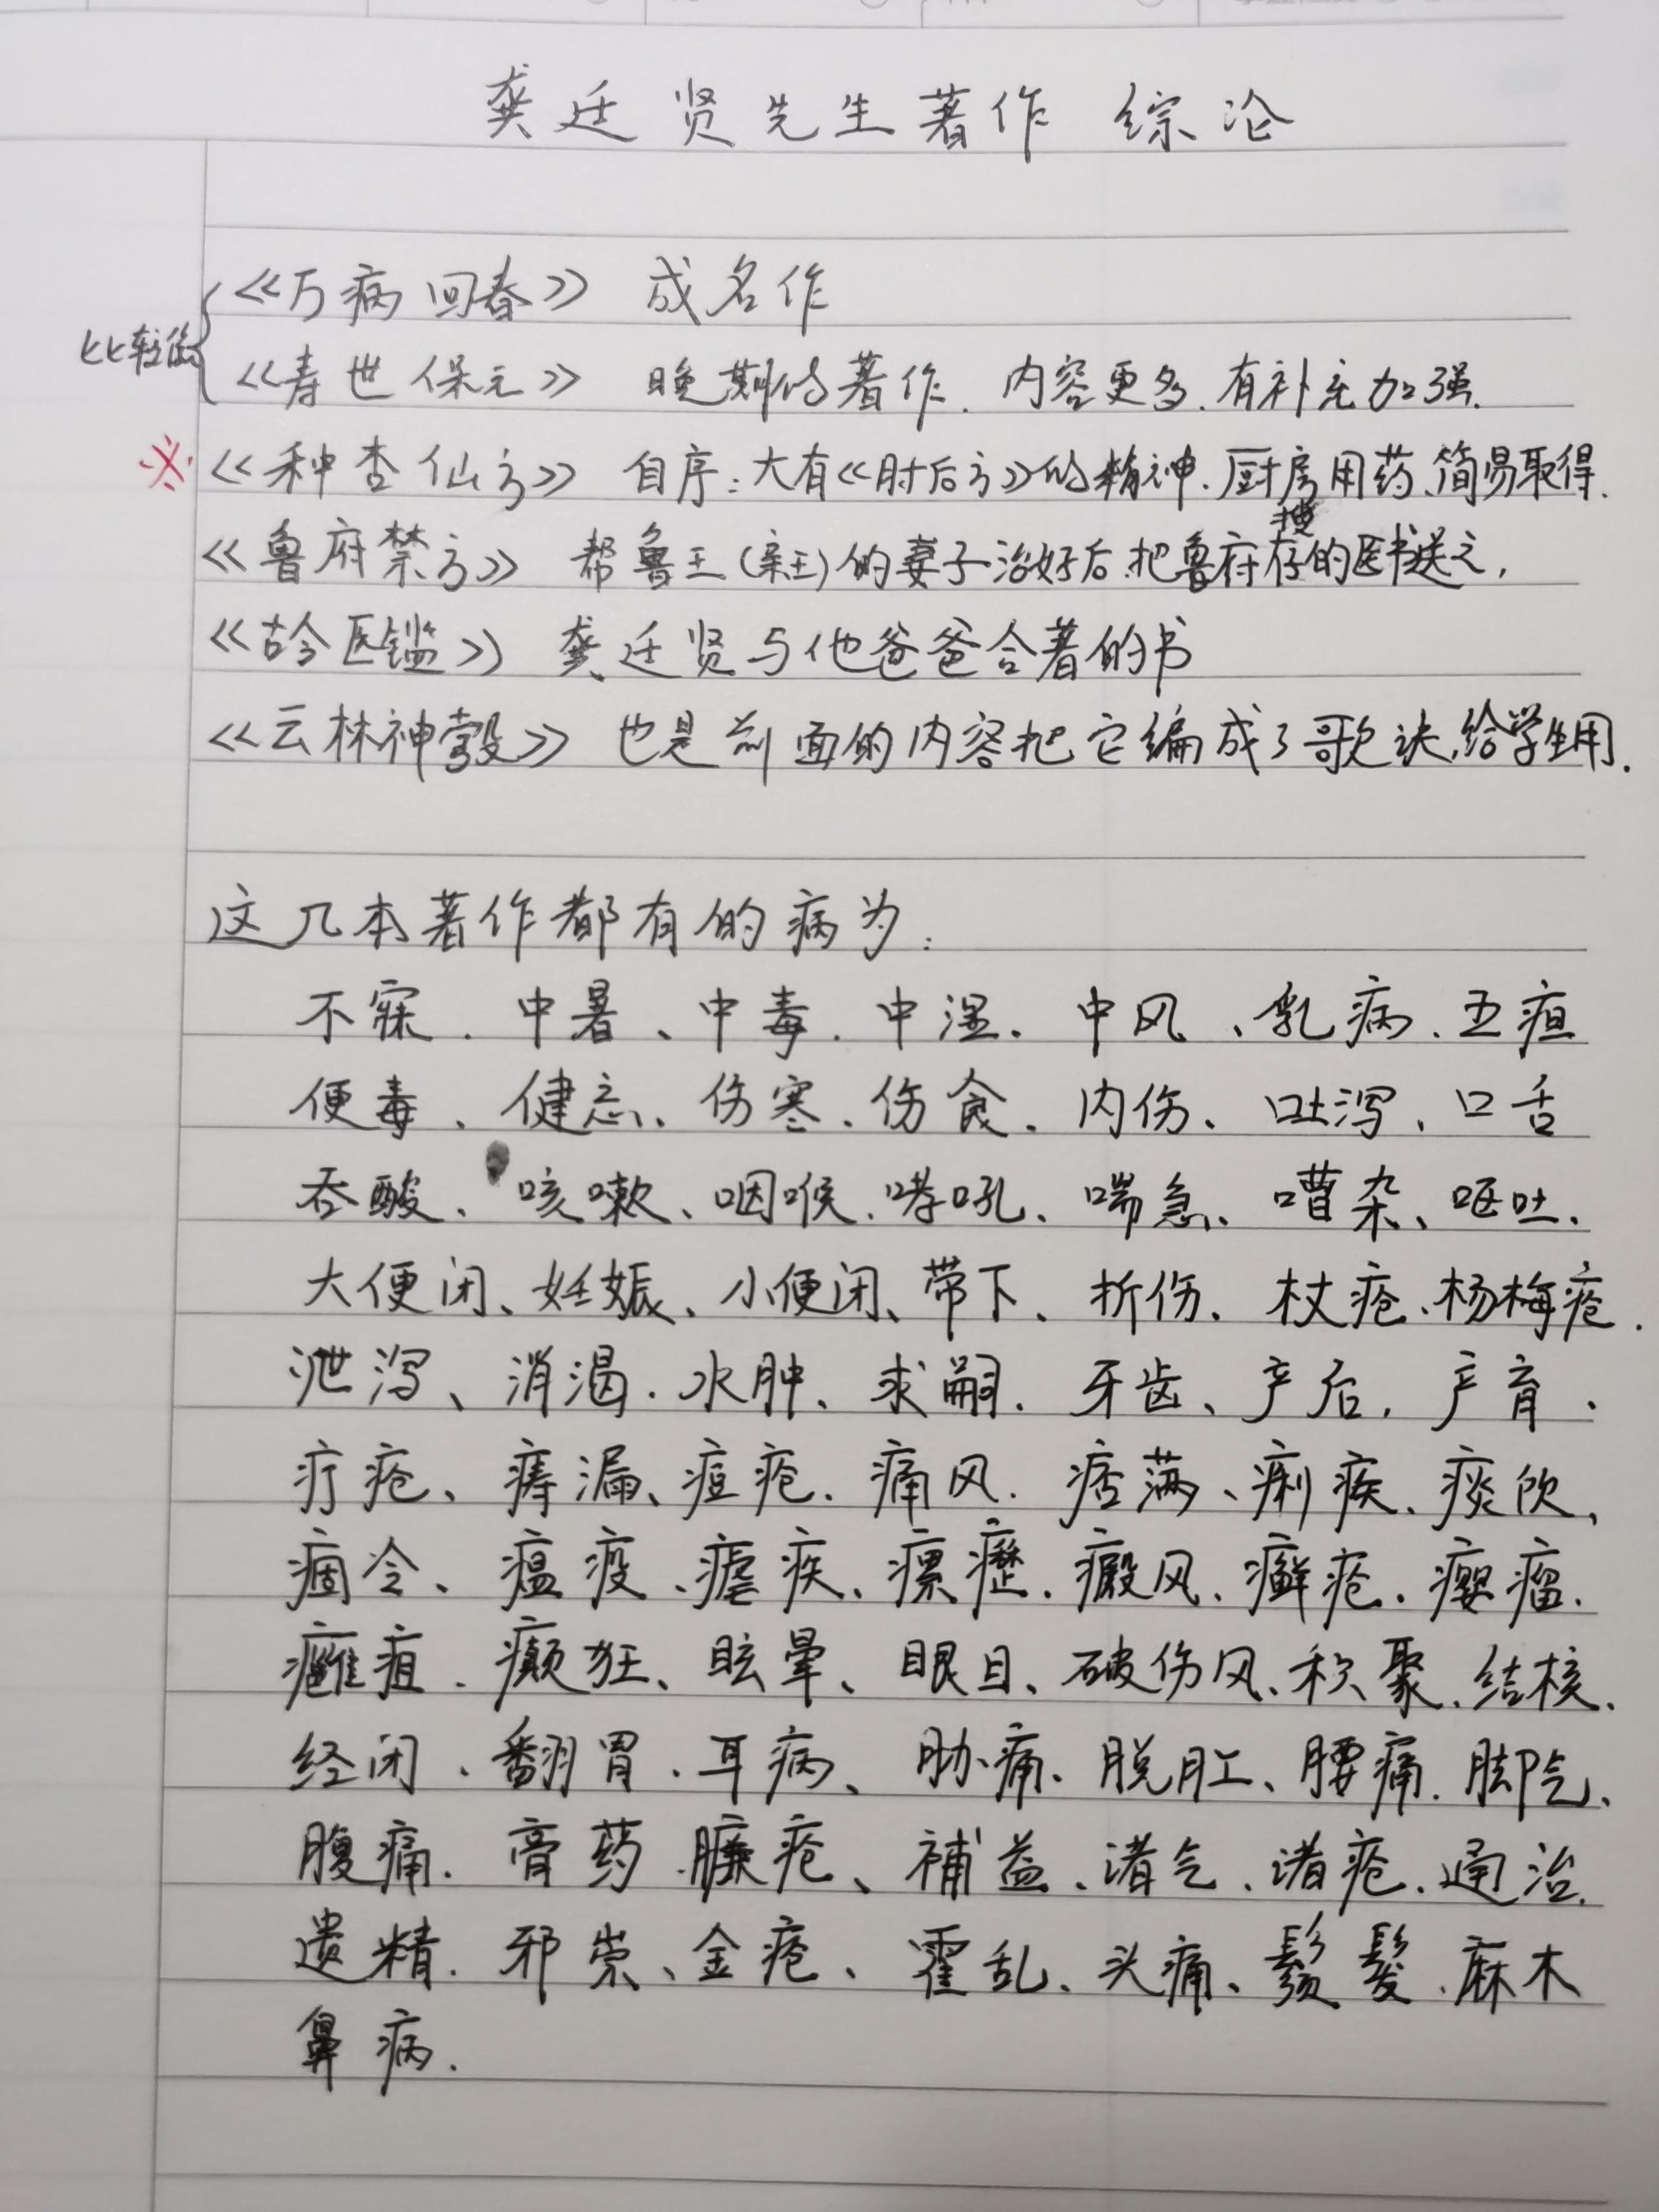 龚廷贤先生著作 综论
《万病回春》 成名作
比较像
《寿世保元》 晚期的著作、内容更多、有补充加强.
※《种杏仙方》 自序:大有《肘后方》的精神.厨房用药、简易取得.
搜
《鲁府禁方》 帮鲁王(亲王)的妻子治好后.把鲁府存的医书送之,
《古今医鑑》 龚廷贤与他爸爸合著的书
《云林神彀》 也是前面的内容把它编成了歌诀,给学生用.
这几本著作都有的病为:
不寐.中暑、中毒.中湿.中风、乳病、五疸
便毒、健忘、伤寒、伤食、内伤、吐泻、口舌
吞酸、咳嗽、咽喉、哮吼、喘急、嘈杂、呕吐、
大便闭、妊娠、小便闭、带下、折伤、杖疮、杨梅疮.
泄泻、消渴.水肿、求嗣.牙齿、产后,产育、
疔疮、痔漏、痘疮.痛风.痞满、痢疾、痰饮、
痼冷、瘟疫、疟疾、瘰疬.癜风、癣疮、瘿瘤.
癰疽.癫狂、眩晕、眼目、破伤风、积聚、结核、
经闭、翻胃.耳病、胁痛、脱肛、腰痛.脚气、
腹痛.膏药.臁疮、補益、诸气、诸疮、通治.
遗精.邪祟、金疮、霍乱、头痛、鬚髮、麻木
鼻病.